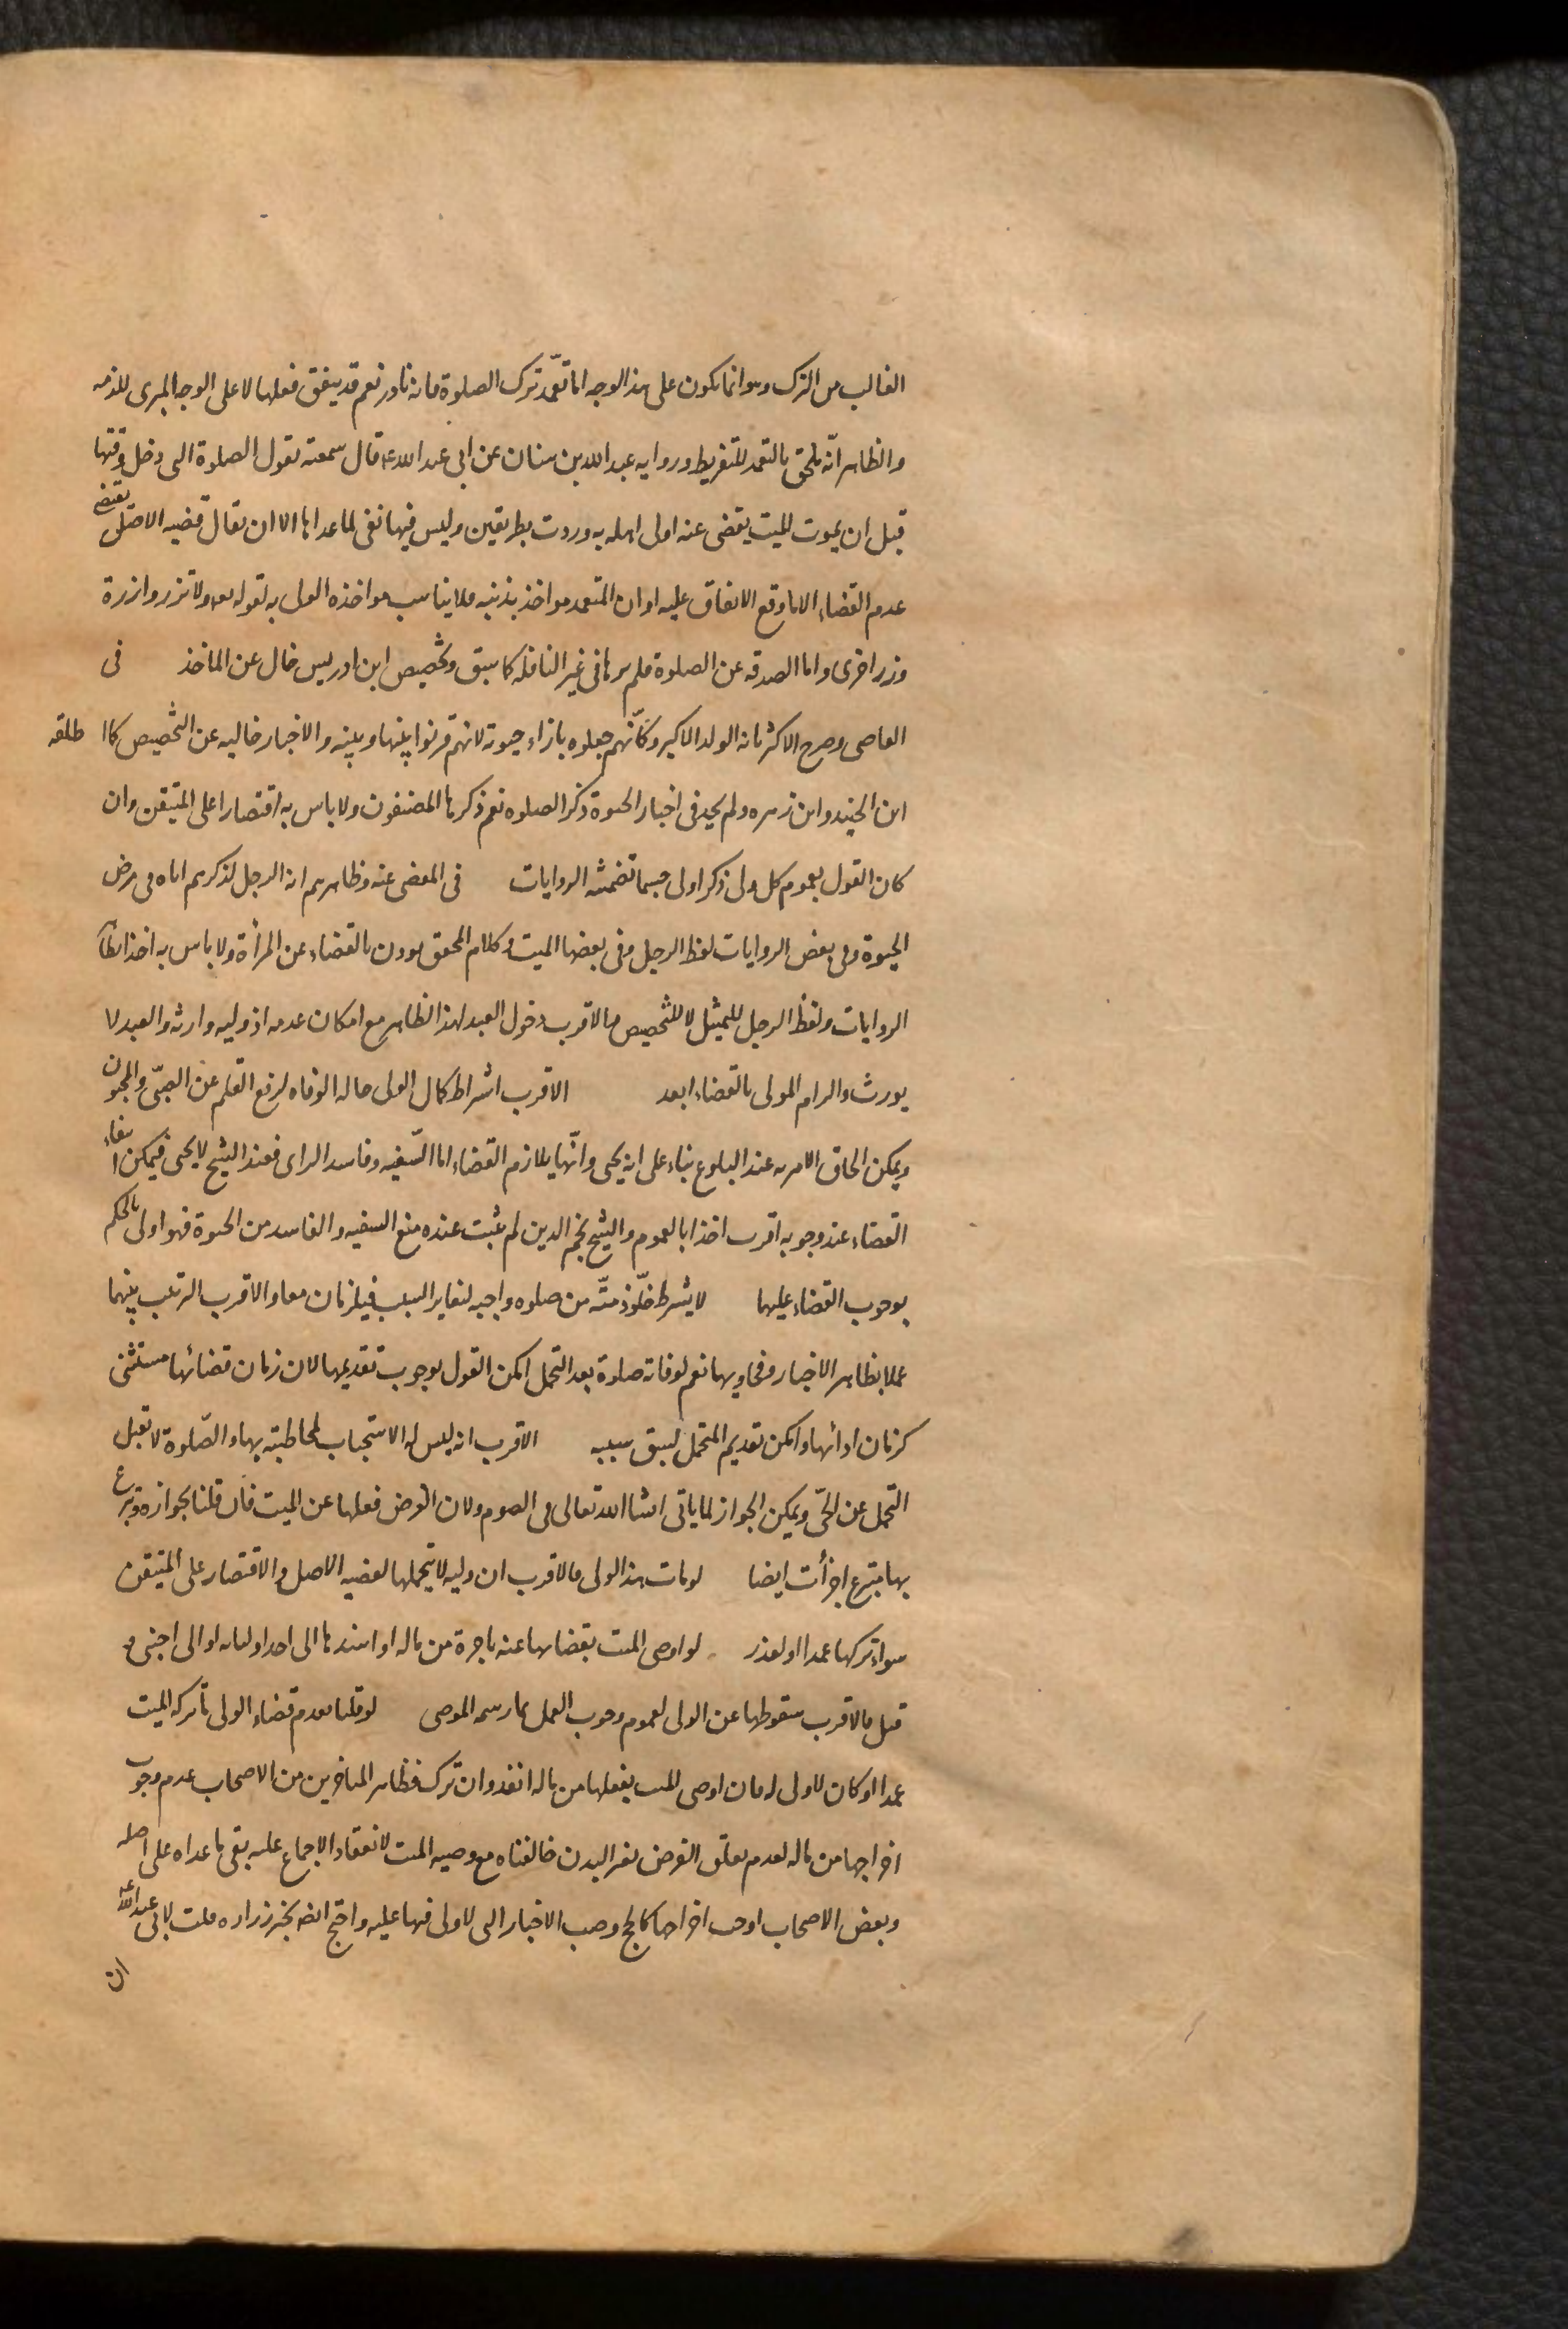 الغالب من الترك وهو انما يكون على هذا الوجه اما تعمّد ترك الصلوة فانه نادر نعم قد يتفق فعلها لا على الوجه المبرى للذمه
والظاهر انّه ملحق بالتعمد للتفريط ورواية عبد الله بن سنان عن ابى عبد الله ع قال سمعته يقول الصلوة التى دخل وقتها
قبل ان يموت الميت يقضى عنه اولى اهله به وردت بطريقين وليس فيها نفى لما عداها الا ان يقال قضيه الاصل يقتضى
عدم القضاء الا ما وقع الاتفاق عليه او ان المتعمد مواخذ بذنبه فلا يناسب مواخذه الولى به لقوله تعه ولا تزر وازرة
وزر اخرى واما الصدقه عن الصلوة فلم نرها فى غير النافله كما سبق وتخصيص ابن ادريس خال عن الماخذ فى
القاضى وصرح الاكثر بانه الولد الاكبر وكأنّهم جعلوه بازاء حبوته لانهم قرنوا بينها وبينه والاخبار خاليه عن التخصيص كما اطلقه
ابن الجنيد وابن زهره ولم نجد فى اخبار الحبوة ذكر الصلوه نعم ذكرها المصنفون ولا باس به اقتصارا على المتيقن وان
كان القول بعموم كل ولى ذكر اولى حسبما تضمنته الروايات فى المقضى عنه وظاهرهم انه الرجل لذكرهم اياه فى معرض
الحبوة وفى بعض الروايات لفظ الرجل وفى بعضها الميت وكلام المحقق يوذن بالقضاء عن المرأة ولا باس به اخذا بظاهر
الروايات ولفظ الرجل للتمثيل لا للتخصيص والاقرب دخول العبد لهذا الظاهر مع امكان عدمه اذ وليه وارثه والعبد لا
يورث والزام المولى بالقضاء ابعد الاقرب اشتراط كمال الولى حاله الوفاه لرفع القلم عن الصبىّ والمجنون
ويمكن الحاق الامر به عند البلوغ بناء على انه يحبى وانّها يلازم القضاء اما السّفيه وفاسد الراى فعند الشيخ لا يحبى فيمكن انتفاء
القضاء عند وجوبه اقرب اخذا بالعموم والشيخ نجم الدين لم يثبت عنده منع السفيه والفاسد من الحبوة فهو اولى بالحكم
بوجوب القضاء عليهما لا يشترط خلّو ذمتّه من صلوه واجبه لتغاير السبب فيلزمان معا والاقرب الترتيب بينهما
عملا بظاهر الاخبار وفحاويها نعم لو فاته صلوة بعد التحمل امكن القول بوجوب تقديمها لان زمان قضائها مستثنى
كزمان ادائها وامكن تقديم المتحمل لسبق سببه الاقرب انه ليس له الاستيجار لمخاطبته بها والصّلوة لا تقبل
التحمل عن الحىّ ويمكن الجواز لما ياتى انشا الله تعالى فى الصوم ولان الغرض فعلها عن الميت فان قلنا بجوازه وتبرع
بها متبرع اجزأت ايضا لو مات هذا الولى فالاقرب ان وليه لا يتحملها لقضيه الاصل والاقتصار على المتيقن
سواء تركها عمدا او لعذر لو اوصى الميت بقضائها عنه باجرة من ماله او اسندها الى احد اوليائه او الى اجنبى و
قبل فالاقرب سقوطها عن الولى لعموم وجوب العمل بما رسمه الموصى لو قلنا بعدم قضاء الولى ما تركه الميت
عمدا او كان لا ولى له فان اوصى الميت بفعلها من ماله انفذ وان ترك فظاهر المتاخرين من الاصحاب عدم وجوب
اخراجها من ماله لعدم تعلق الفرض بغير البدن خالفناه مع وصيه الميت لانعقاد الاجماع عليه بقى ما عداه على اصله
وبعض الاصحاب اوجب اخراجها كالحج وصب الاخبار التى لا ولى فيها عليه واحتج ايضا بخبر زراره قلت لابى عبد الله ع
ان